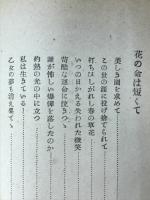 花の命は短くて
美しき園を求めて
この世の涯に投げ捨てられて
打ちはしがれし春の草花
いつの日かえる失われた微笑
苛酷な運命に泣きつゝ
誰が怖しい爆弾を落したのか
灼熱の光の中に立つ
私は生きている！
乙女の夢も消え果てゝ